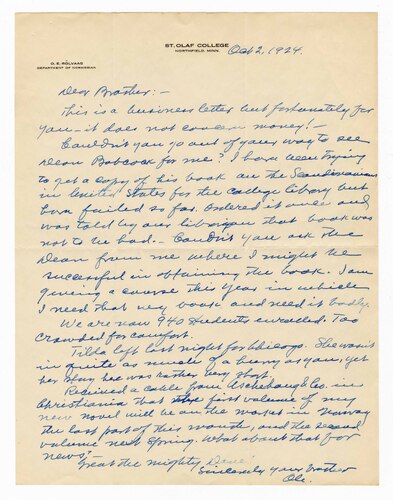 ST. OLAF COLLEGE
NORTHFIELD, MINN.
O. E. ROLVAAG
DEPARTMENT OF NORWEGIAN
Oct 2, 1924.
Dear Brother:-
This is a business letter but fortunately for
you - it does not concern money! -
Couldn't you go out of your way to see
Dean Babcock for me? I have been trying
to get a copy of his book on the Scandinavians
in United States for the college library but
have failed so far. Ordered it once and
was told by our librarian that book was
not to be had. - Couldn't you ask the
Dean from me where I might be
successful in obtaining the book. I am
giving a course this year in which
I need that very book and need it badly.
We are now 940 students enrolled. Too
crowded for comfort.
Tilda left last night for Chicago. She wasn't
in quite as much of a hurry as you, yet
her stay here was rather very short.
Received a cable from Aschehoug & Co. in
Christiania that the first volume of my
new novel will be on the market in Norway
the last part of this month, and the second
volume next Spring. What about that for
news? -
Great the mighty
Sincerely your brother
Ole.